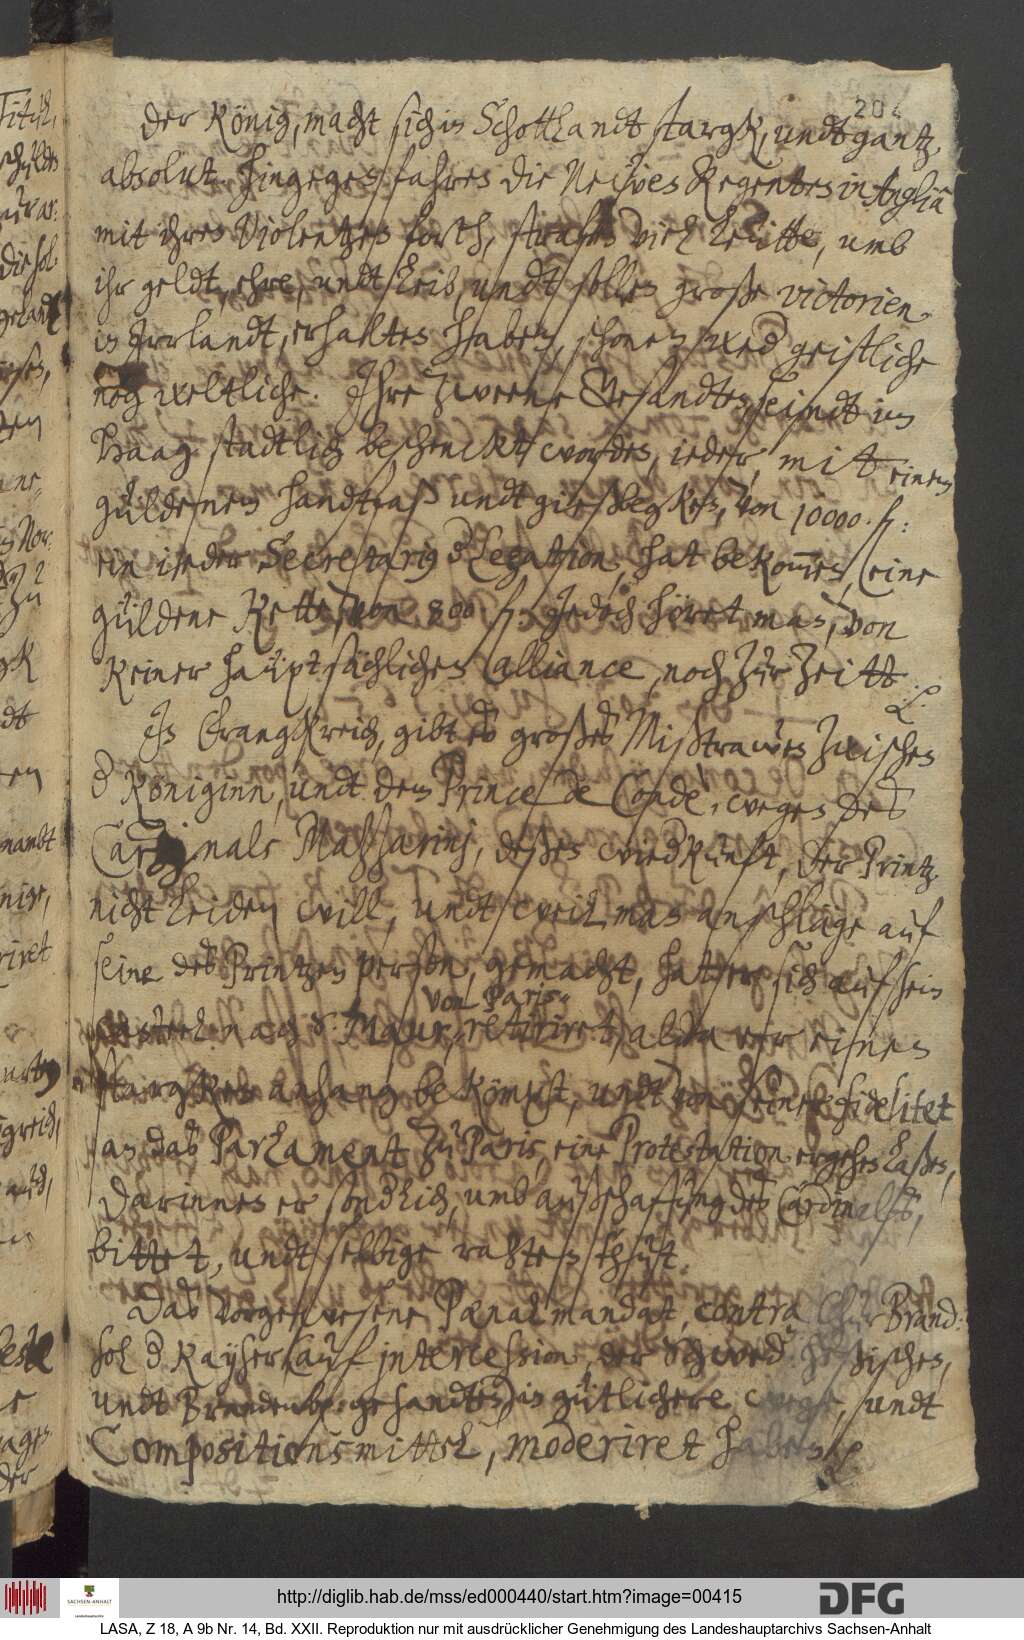 204
Der König, macht sich in Schottlandt stargk, undt gantz
absolut. Hingegen fahren die Newen Regenten in Anglia
mit ihren Violentzen forth, strafen viel Leutte, umb
ihr geldt, ehre, undt Leib, undt sollen große victorien
in Irrlandt, erhalten haben, schonen wed geistliche
noch weltliche. Ihre zweene Gesandten, seindt im
Haag stadtlich beschenckt worden, ieder, mit einem
güldenem handtfaß undt gießbegken, von 10000 fl:
ein ieder Secretarius d Legation, hat bekommen, eine
güldene Kette, von 800 fl. Jedoch höret man, von
keiner hauptsächlichen alliance, noch zur Zeitt.
In Frangkreich, gibt es großes Mißtrawen zwischen
d Königinn, undt dem Prince de Condè, wegen des
Cardinals Mazzarinj, deßen wiedkunft, der Printz
nicht leiden will, undt weil man anschläge auf
seine des Printzen person, gemacht, hat er sich auf sein
von Paris
Casteel nach S. Maur, retiriret, alda er einen
stargken anhang bekömpt, undt von seiner fidelitet
an das Parlament zu Paris, eine Protestation ergehen laßen,
darinnen er sondlich, umb außschaffung des Cardinals,
bittet, undt selbige rahten thut.
Das vorgewesene Pœnal mandat, contra Chur Brand:
sol d Kayser (auf intercession, der Schwed: Heßischen,
undt Brandenb: gesandten) in gütlichere wege, undt
Compositionsmittel, moderiret haben
http://diglib.hab.de/mss/ed000440/start.htm?image=00415
DFG
SACHSEN-ANHALT
LASA, Z 18, A 9b Nr. 14, Bd. XXII. Reproduktion nur mit ausdrücklicher Genehmigung des Landeshauptarchivs Sachsen-Anhalt